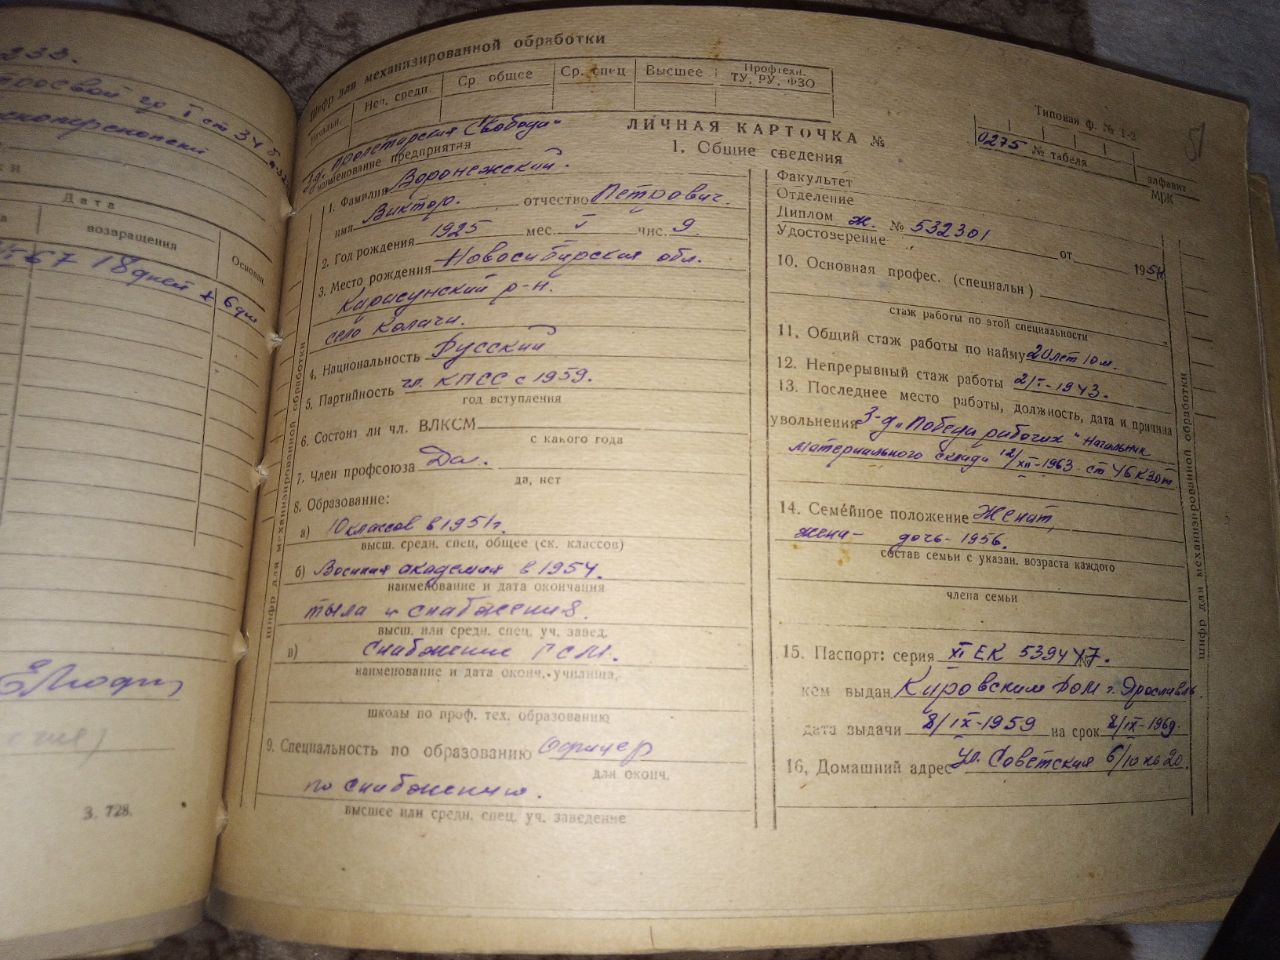 233.
I ст 34
Дата
возвращения
Основан.
67 18 дней + 6 дн
З. 728.
Шифр для механизированной обработки
Начальн.
Неп. средн.
Ср общее
Ср. спец
Высшее
Профтехн.
ТУ, РУ, ФЗО
Типовая ф. № 1-2
З-д. "Пролетарская Свобода"
наименование предприятия
ЛИЧНАЯ КАРТОЧКА №
0275 № табеля
алфавит
М/Ж
1. Общие сведения
1. Фамилия Воронежский.
имя Виктор. отчество Петрович.
2. Год рождения 1925 мес. V чис. 9.
3. Место рождения Новосибирская обл.
р-н.
село Колачи.
4. Национальность Русский
5. Партийность чл. КПСС с 1959.
год вступления
6. Состоит ли чл. ВЛКСМ
с какого года
7. Член профсоюза Да.
да, нет
8. Образование:
а) 10 классов в 1951 г.
высш. средн. спец, общее (ск. классов)
б) Военная академия в 1954.
наименование и дата окончания
тыла и снабжения.
высш. или средн. спец. уч. завед.
в) Снабжение ГСМ.
наименование и дата оконч. училища,
школы по проф. тех. образованию
9. Специальность по образованию Офицер
для оконч.
по снабжению.
высшее или средн. спец. уч. заведение
шифр для механизированной обработки
Факультет
Отделение
Диплом Ж. № 532301
Удостоверение от 1954
10. Основная профес. (специальн)
стаж работы по этой специальности
11. Общий стаж работы по найму 20 лет 10 м.
12. Непрерывный стаж работы 2/I-1943.
13. Последнее место работы, должность, дата и причина
увольнения З-д „Победа рабочих" Начальник
материального склада 12/XII-1963. ст 46 КЗОТ
14. Семейное положение Женат
жена- дочь- 1956.
состав семьи с указан. возраста каждого
члена семьи
15. Паспорт: серия XI ЕК № 539447.
кем выдан Кировским РОМ г. Ярославль
дата выдачи 8/IX-1959 на срок 8/IX-1969.
16, Домашний адрес Ул. Советская 6/10 кв 20.
шифр для механизированной обработки